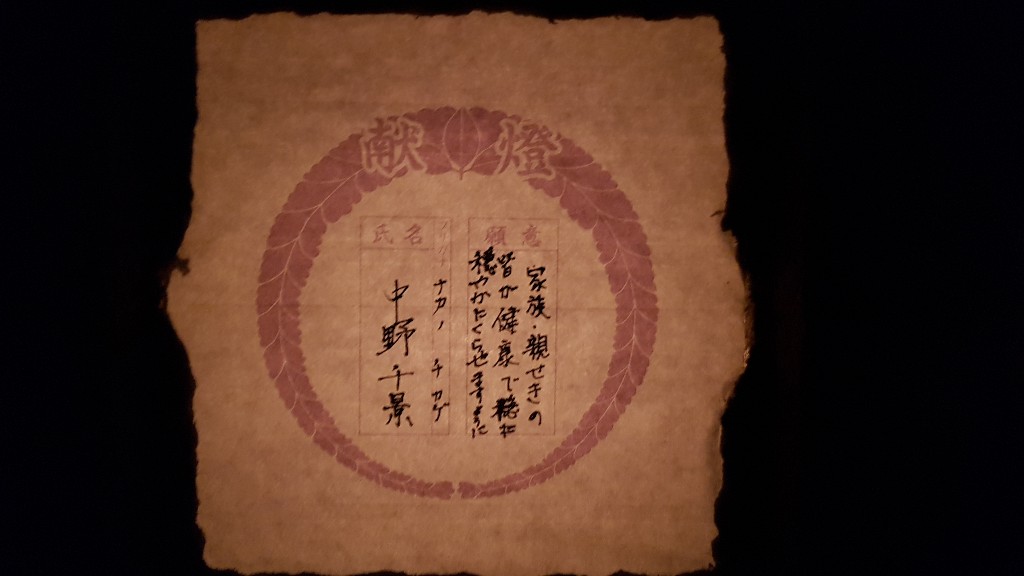 献燈
意願
家族・親せきの
皆が健康で穏に
穏やかにくらせますように
フリガナ
ナカノ チカゲ
氏名
中野千景